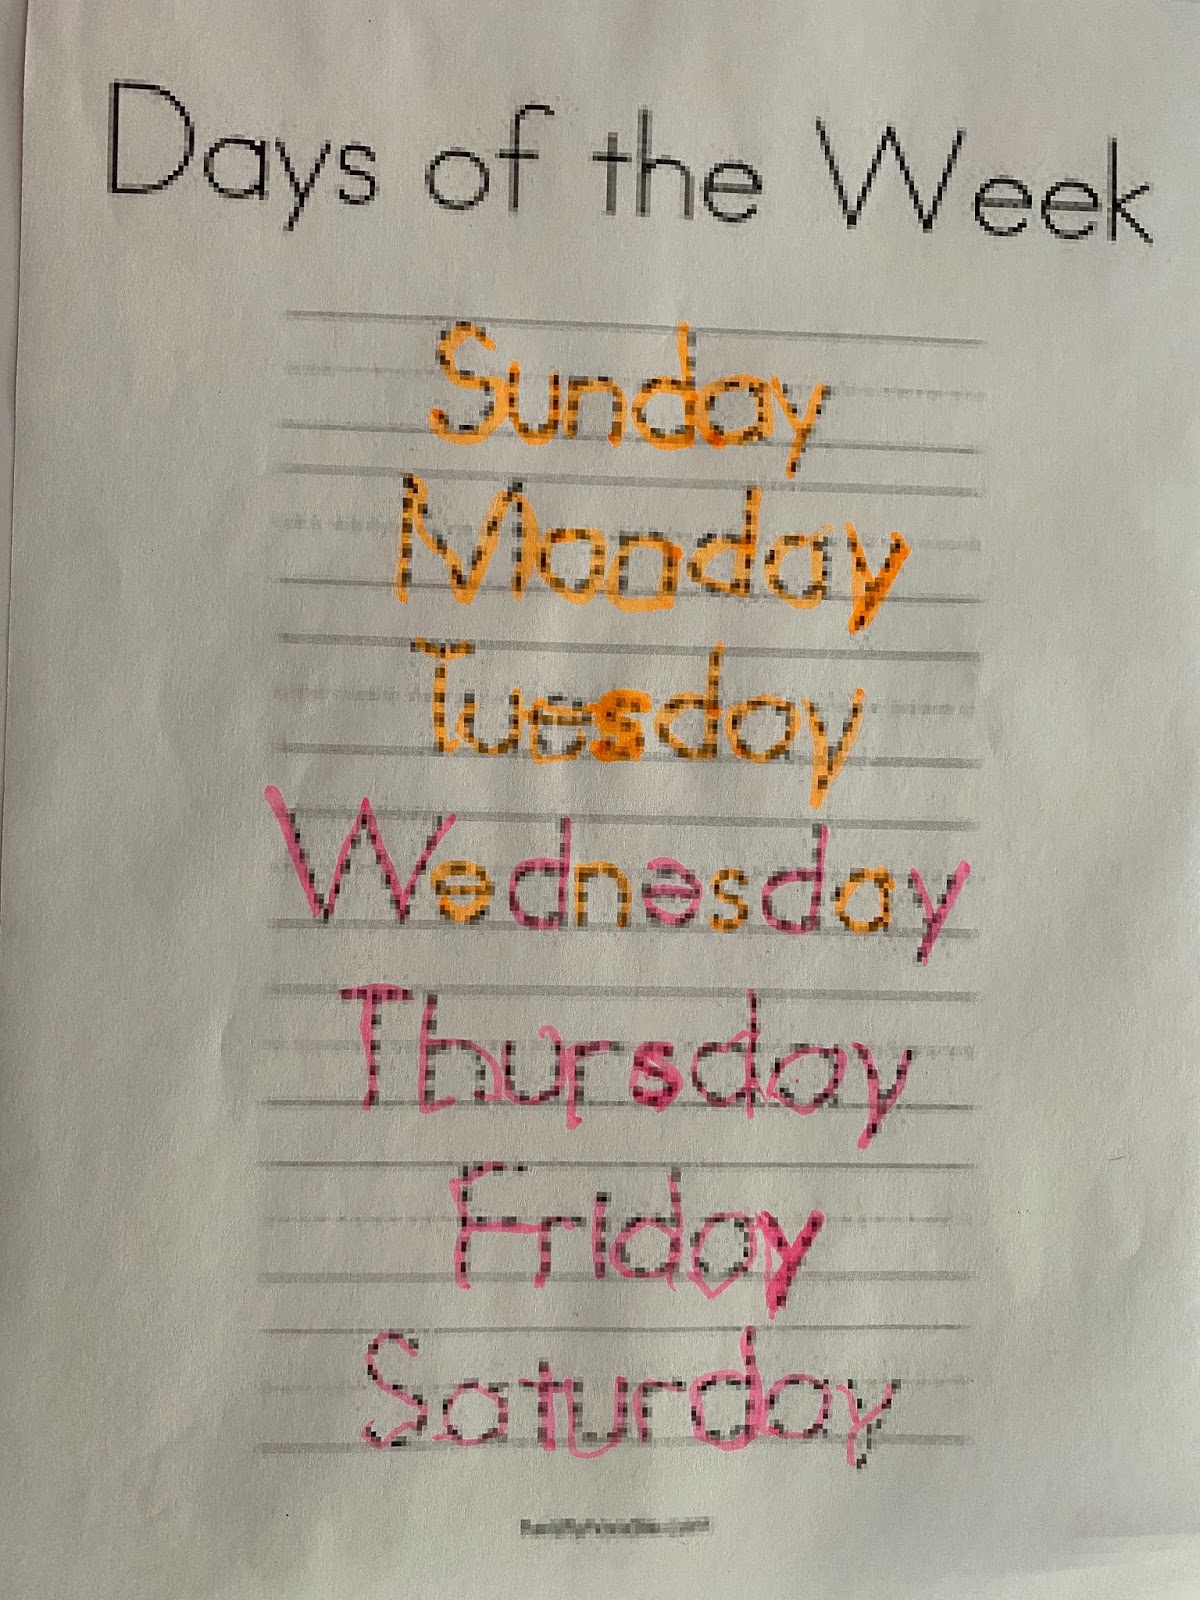 Days of the Week
Sunday
Monday
Tuesday
Wednesday
Thursday
Friday
Saturday